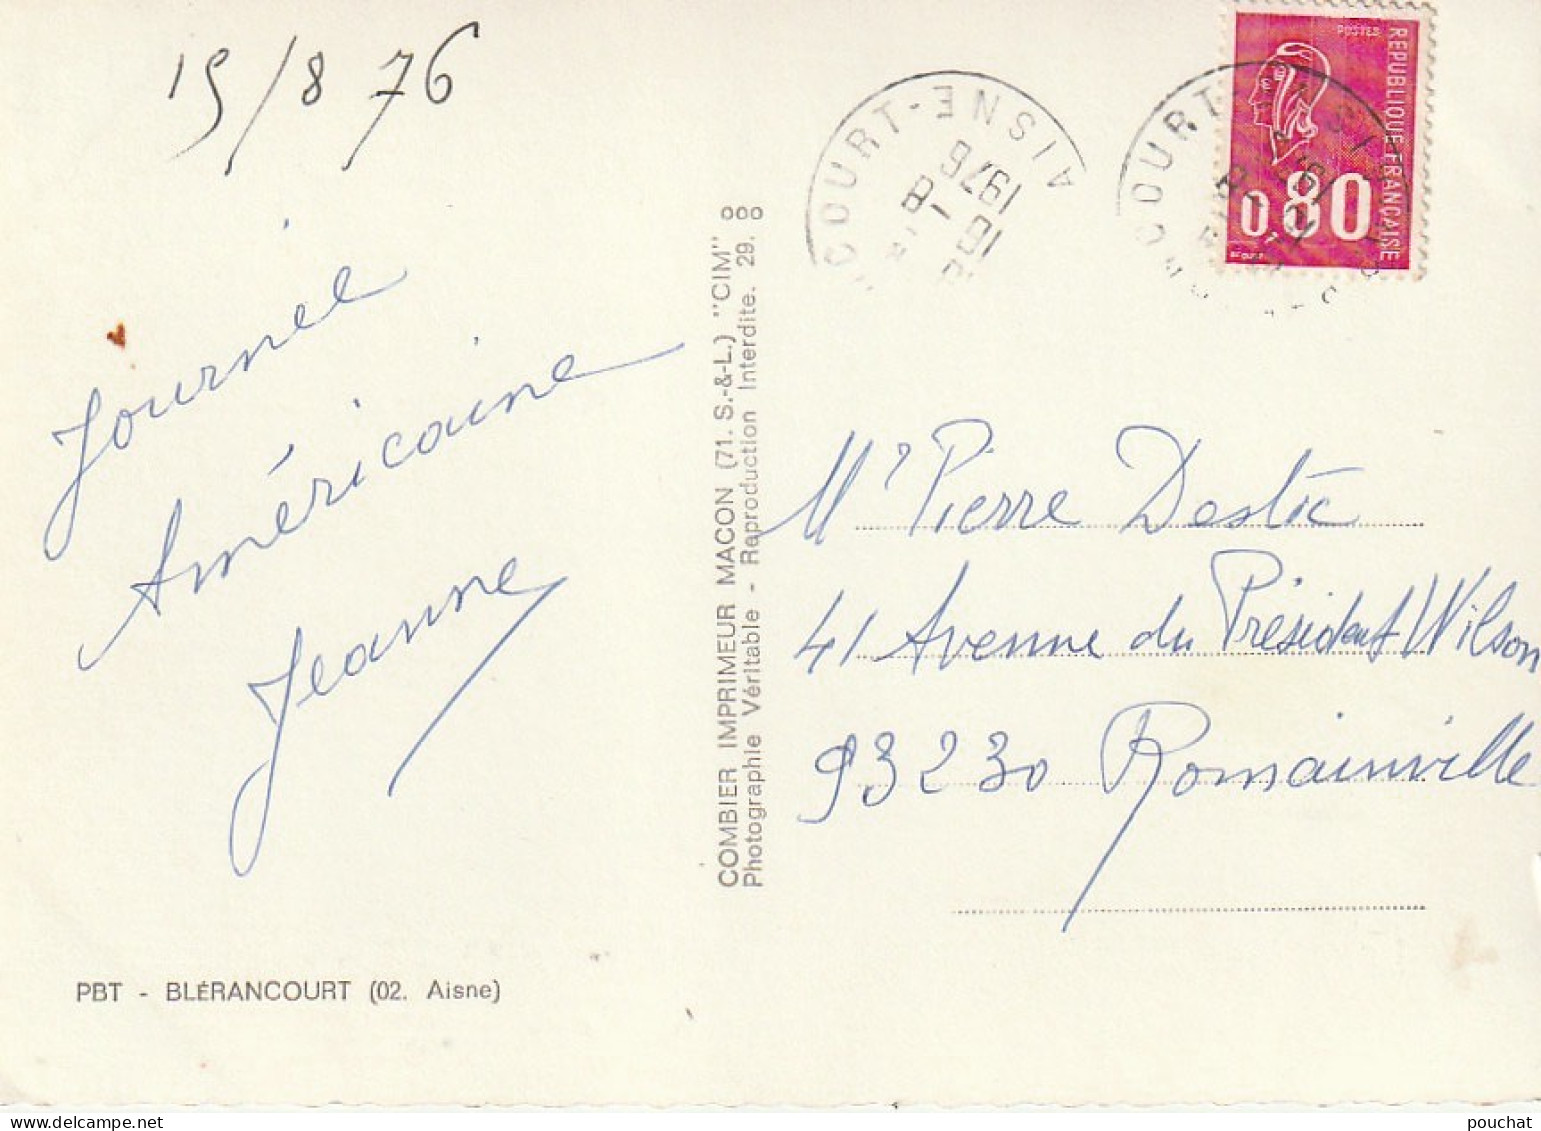 15/8 76
Journée
Américaine
Jeanne
PBT - BLÉRANCOURT (02. Aisne)
COMBIER IMPRIMEUR MACON (71. S.-&-L.) "CIM"
Photographie Véritable - Reproduction Interdite. 29.
COURT-AISNE
1976
POSTES
REPUBLIQUE FRANÇAISE
0,80
Mr Pierre
41 Avenue du Président Wilson
93230 Romainville
pouchat